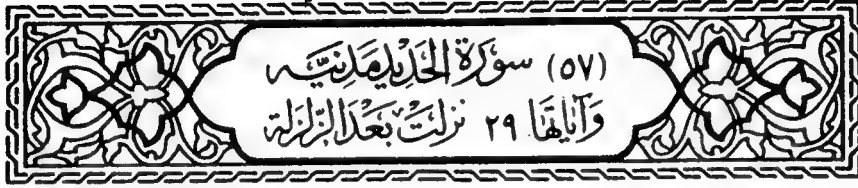 (٥٧) سورة الحديد مدنيّة
وآياتها ٢٩ نزلت بعد الزلزلة